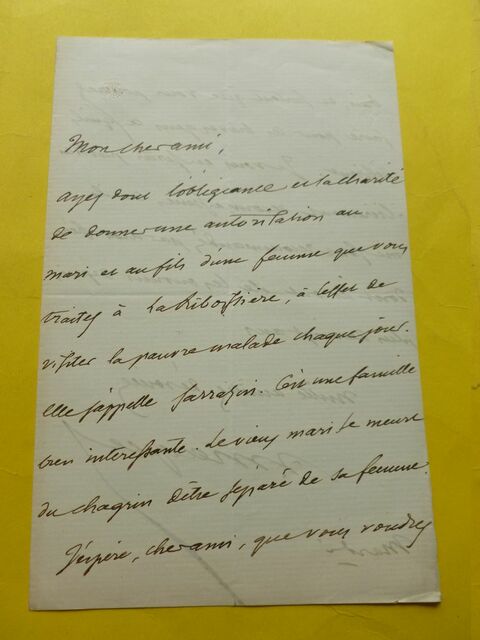 Mon cher ami,
ayez donc l'obligeance et la charité
de donner une autorisation au
mari et au fils d'une femme que vous
traitez à Lariboisière, à l'effet de
visiter la pauvre malade chaque jour.
elle s'appelle Sarrazin. C'est une famille
bien intéressante. Le vieux mari se meurt
du chagrin d'être séparé de sa femme.
J'espère, cher ami, que vous voudrez